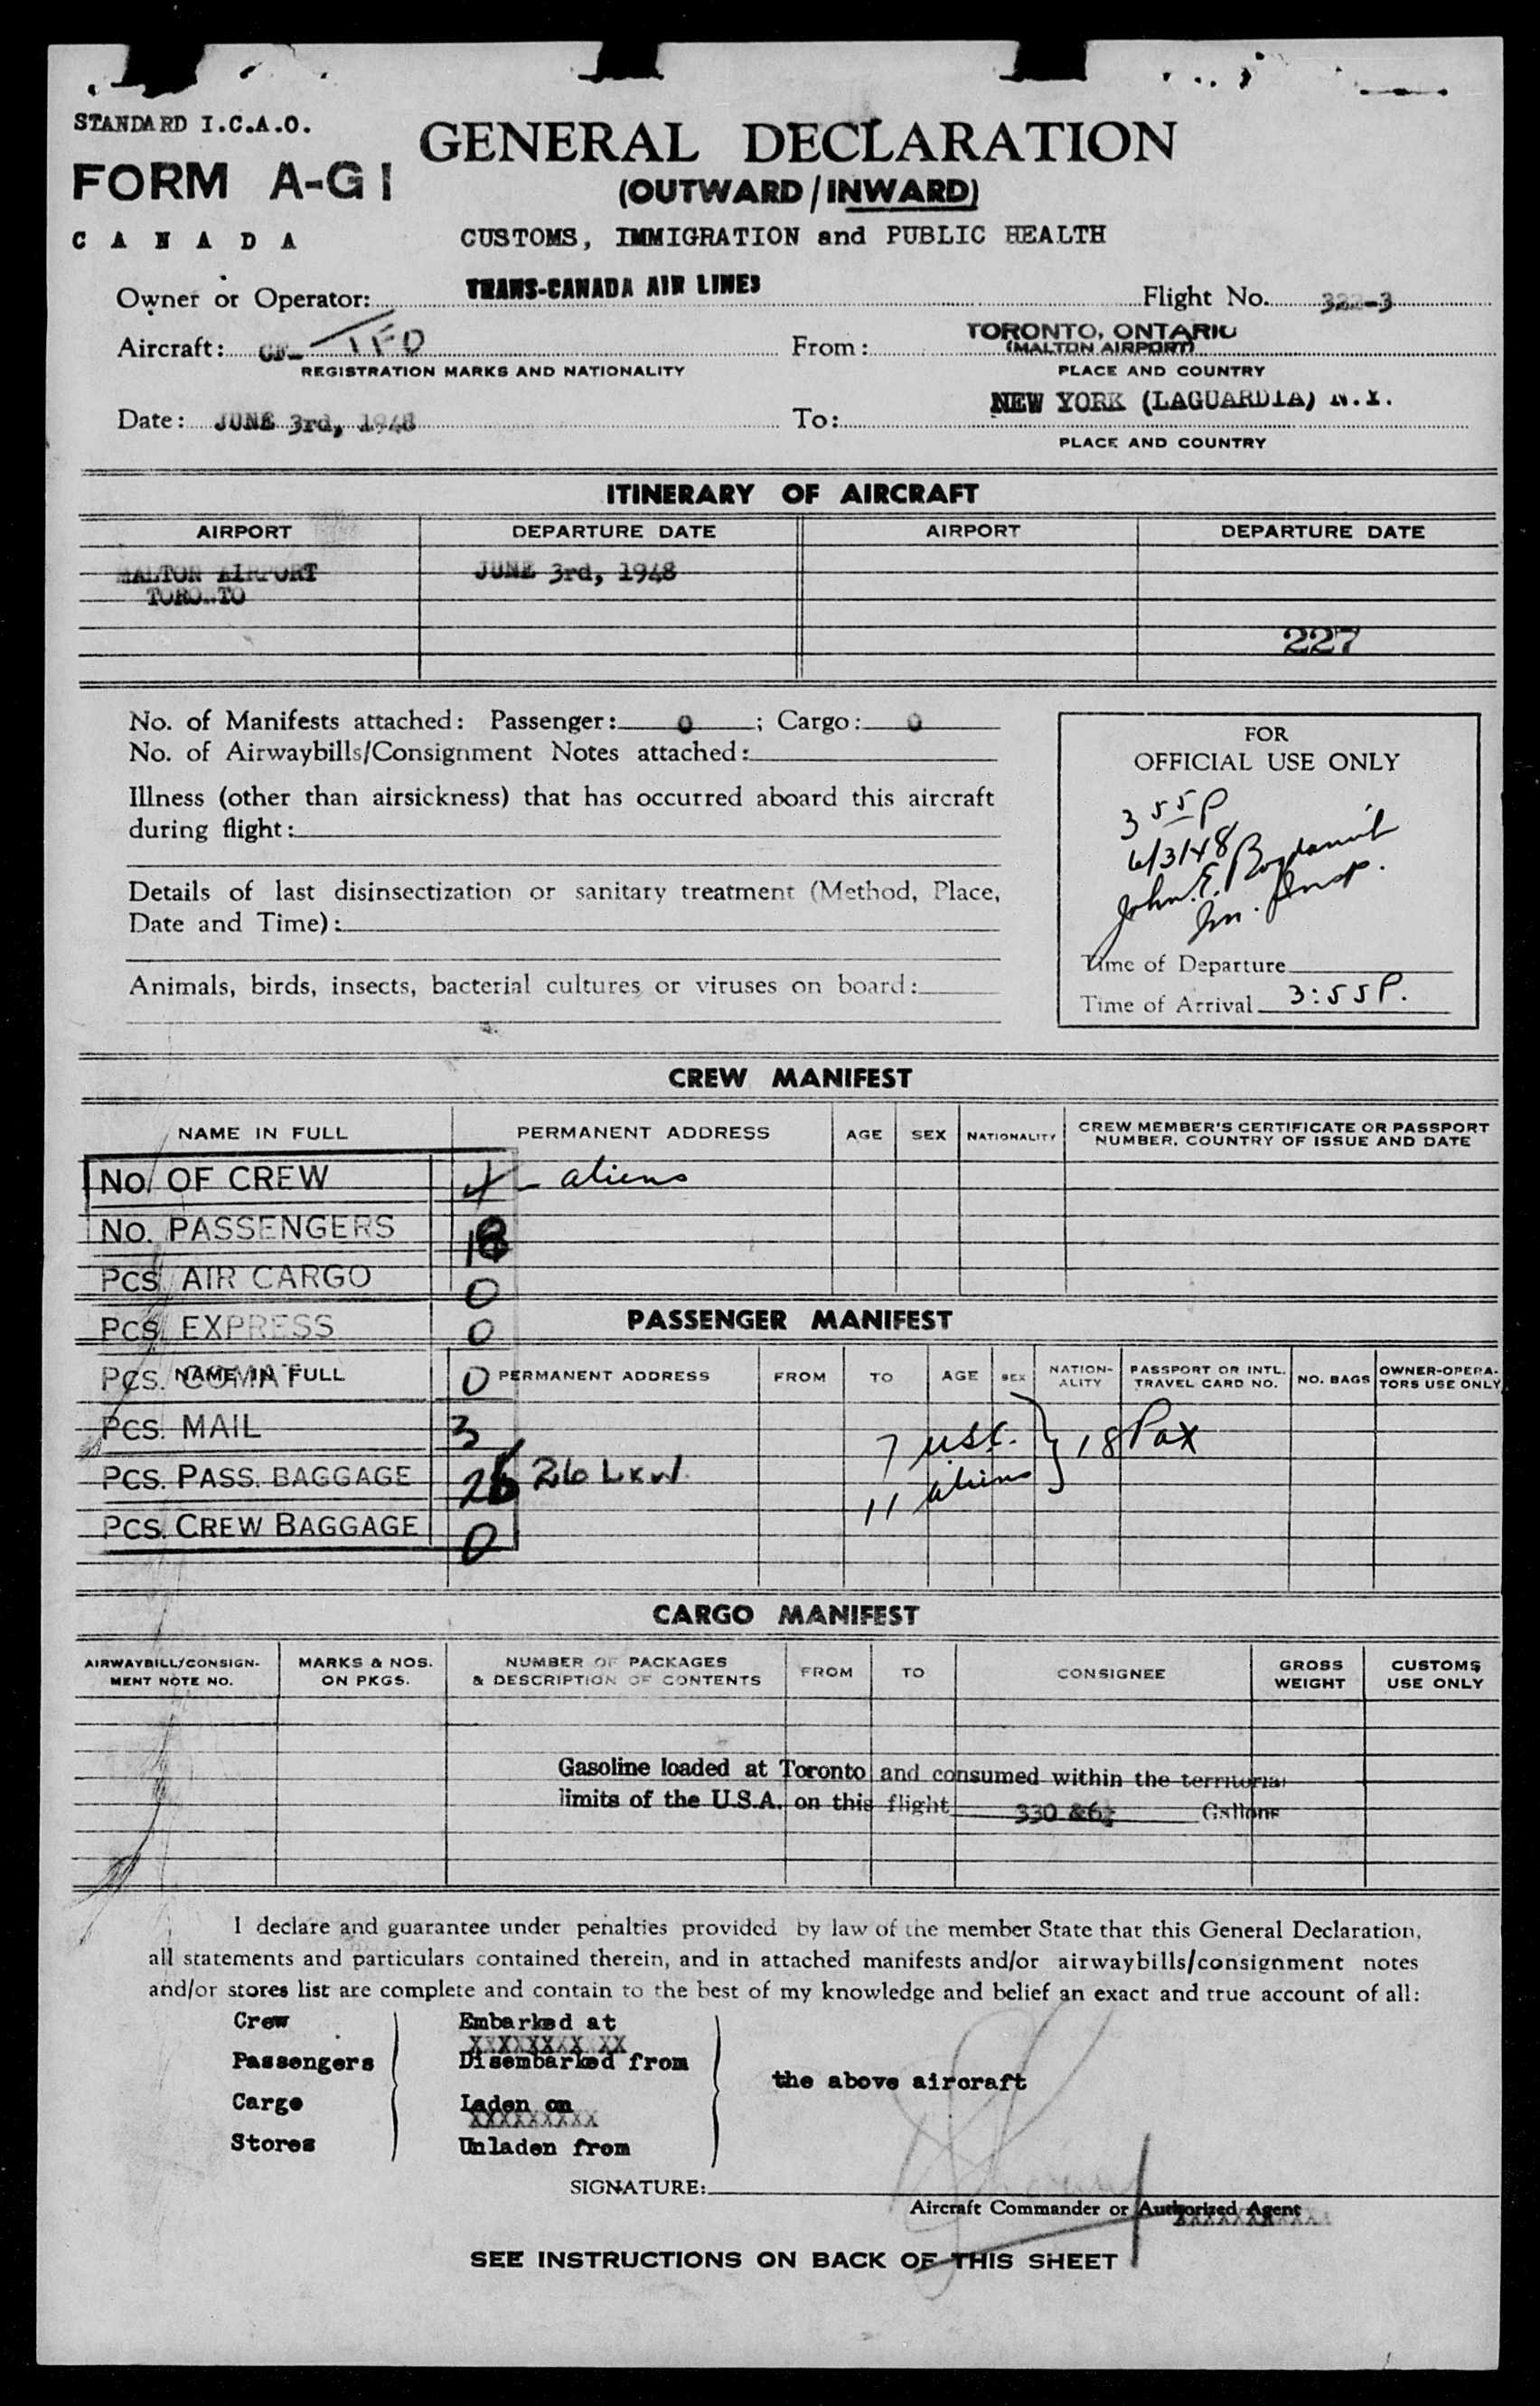 STANDARD I.C.A.O.
FORM A-G1
CANADA
GENERAL DECLARATION
(OUTWARD/INWARD)
CUSTOMS, IMMIGRATION and PUBLIC HEALTH
Owner or Operator: TRANS-CANADA AIR LINES Flight No. 322-3
Aircraft: CF- TFO From: TORONTO, ONTARIO
(MALTON AIRPORT)
REGISTRATION MARKS AND NATIONALITY PLACE AND COUNTRY
Date: JUNE 3rd, 1948 To: NEW YORK (LAGUARDIA) N.Y.
PLACE AND COUNTRY
ITINERARY OF AIRCRAFT
AIRPORT DEPARTURE DATE AIRPORT DEPARTURE DATE
MALTON AIRPORT JUNE 3rd, 1948
TORONTO
227
No. of Manifests attached: Passenger: 0 ; Cargo: 0
No. of Airwaybills/Consignment Notes attached:
Illness (other than airsickness) that has occurred aboard this aircraft
during flight:
Details of last disinsectization or sanitary treatment (Method, Place,
Date and Time):
Animals, birds, insects, bacterial cultures or viruses on board:
FOR
OFFICIAL USE ONLY
3 55 P
6/3/48
John E.
Im. Insp.
Time of Departure
Time of Arrival 3:55 P.
CREW MANIFEST
NAME IN FULL PERMANENT ADDRESS AGE SEX NATIONALITY CREW MEMBER'S CERTIFICATE OR PASSPORT
NUMBER, COUNTRY OF ISSUE AND DATE
No. OF CREW 4 - aliens
No. PASSENGERS 18
Pcs. AIR CARGO 0
Pcs. EXPRESS 0
PASSENGER MANIFEST
Pcs. COMAT 0
NAME IN FULL PERMANENT ADDRESS FROM TO AGE SEX NATION-
ALITY PASSPORT OR INTL.
TRAVEL CARD NO. NO. BAGS OWNER-OPERA-
TORS USE ONLY
Pcs. MAIL 3
7 USC. } 18 Pax
Pcs. PASS. BAGGAGE 26 26
11 aliens
Pcs. CREW BAGGAGE 0
CARGO MANIFEST
AIRWAYBILL/CONSIGN-
MENT NOTE NO. MARKS & NOS.
ON PKGS. NUMBER OF PACKAGES
& DESCRIPTION OF CONTENTS FROM TO CONSIGNEE GROSS
WEIGHT CUSTOMS
USE ONLY
Gasoline loaded at Toronto and consumed within the territorial
limits of the U.S.A. on this flight 330 Gallons
I declare and guarantee under penalties provided by law of the member State that this General Declaration,
all statements and particulars contained therein, and in attached manifests and/or airwaybills/consignment notes
and/or stores list are complete and contain to the best of my knowledge and belief an exact and true account of all:
Crew Embarked at
XXXXXXXX XX
Passengers Disembarked from
the above aircraft
Cargo Laden on
XXXXXXXXX
Stores Unladen from
SIGNATURE:
Aircraft Commander or Authorized Agent
SEE INSTRUCTIONS ON BACK OF THIS SHEET